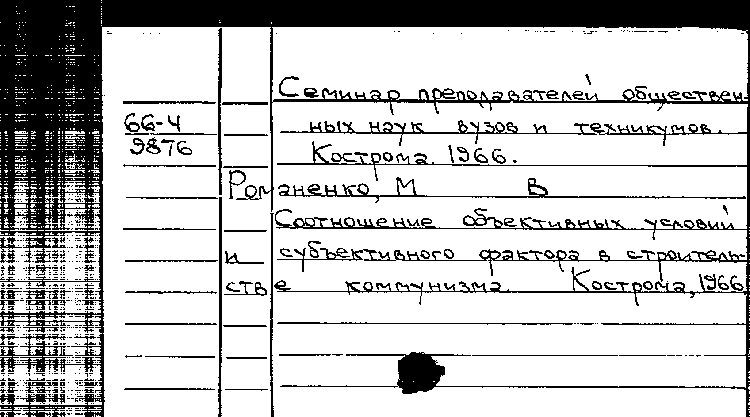 Семинар преподавателей обществен-
66-4 ных наук вузов и техникумов.
9876 Кострома. 1966.
Романенко, М В
Соотношение объективных условий
и субъективного фактора в строитель-
стве коммунизма. Кострома, 1966.